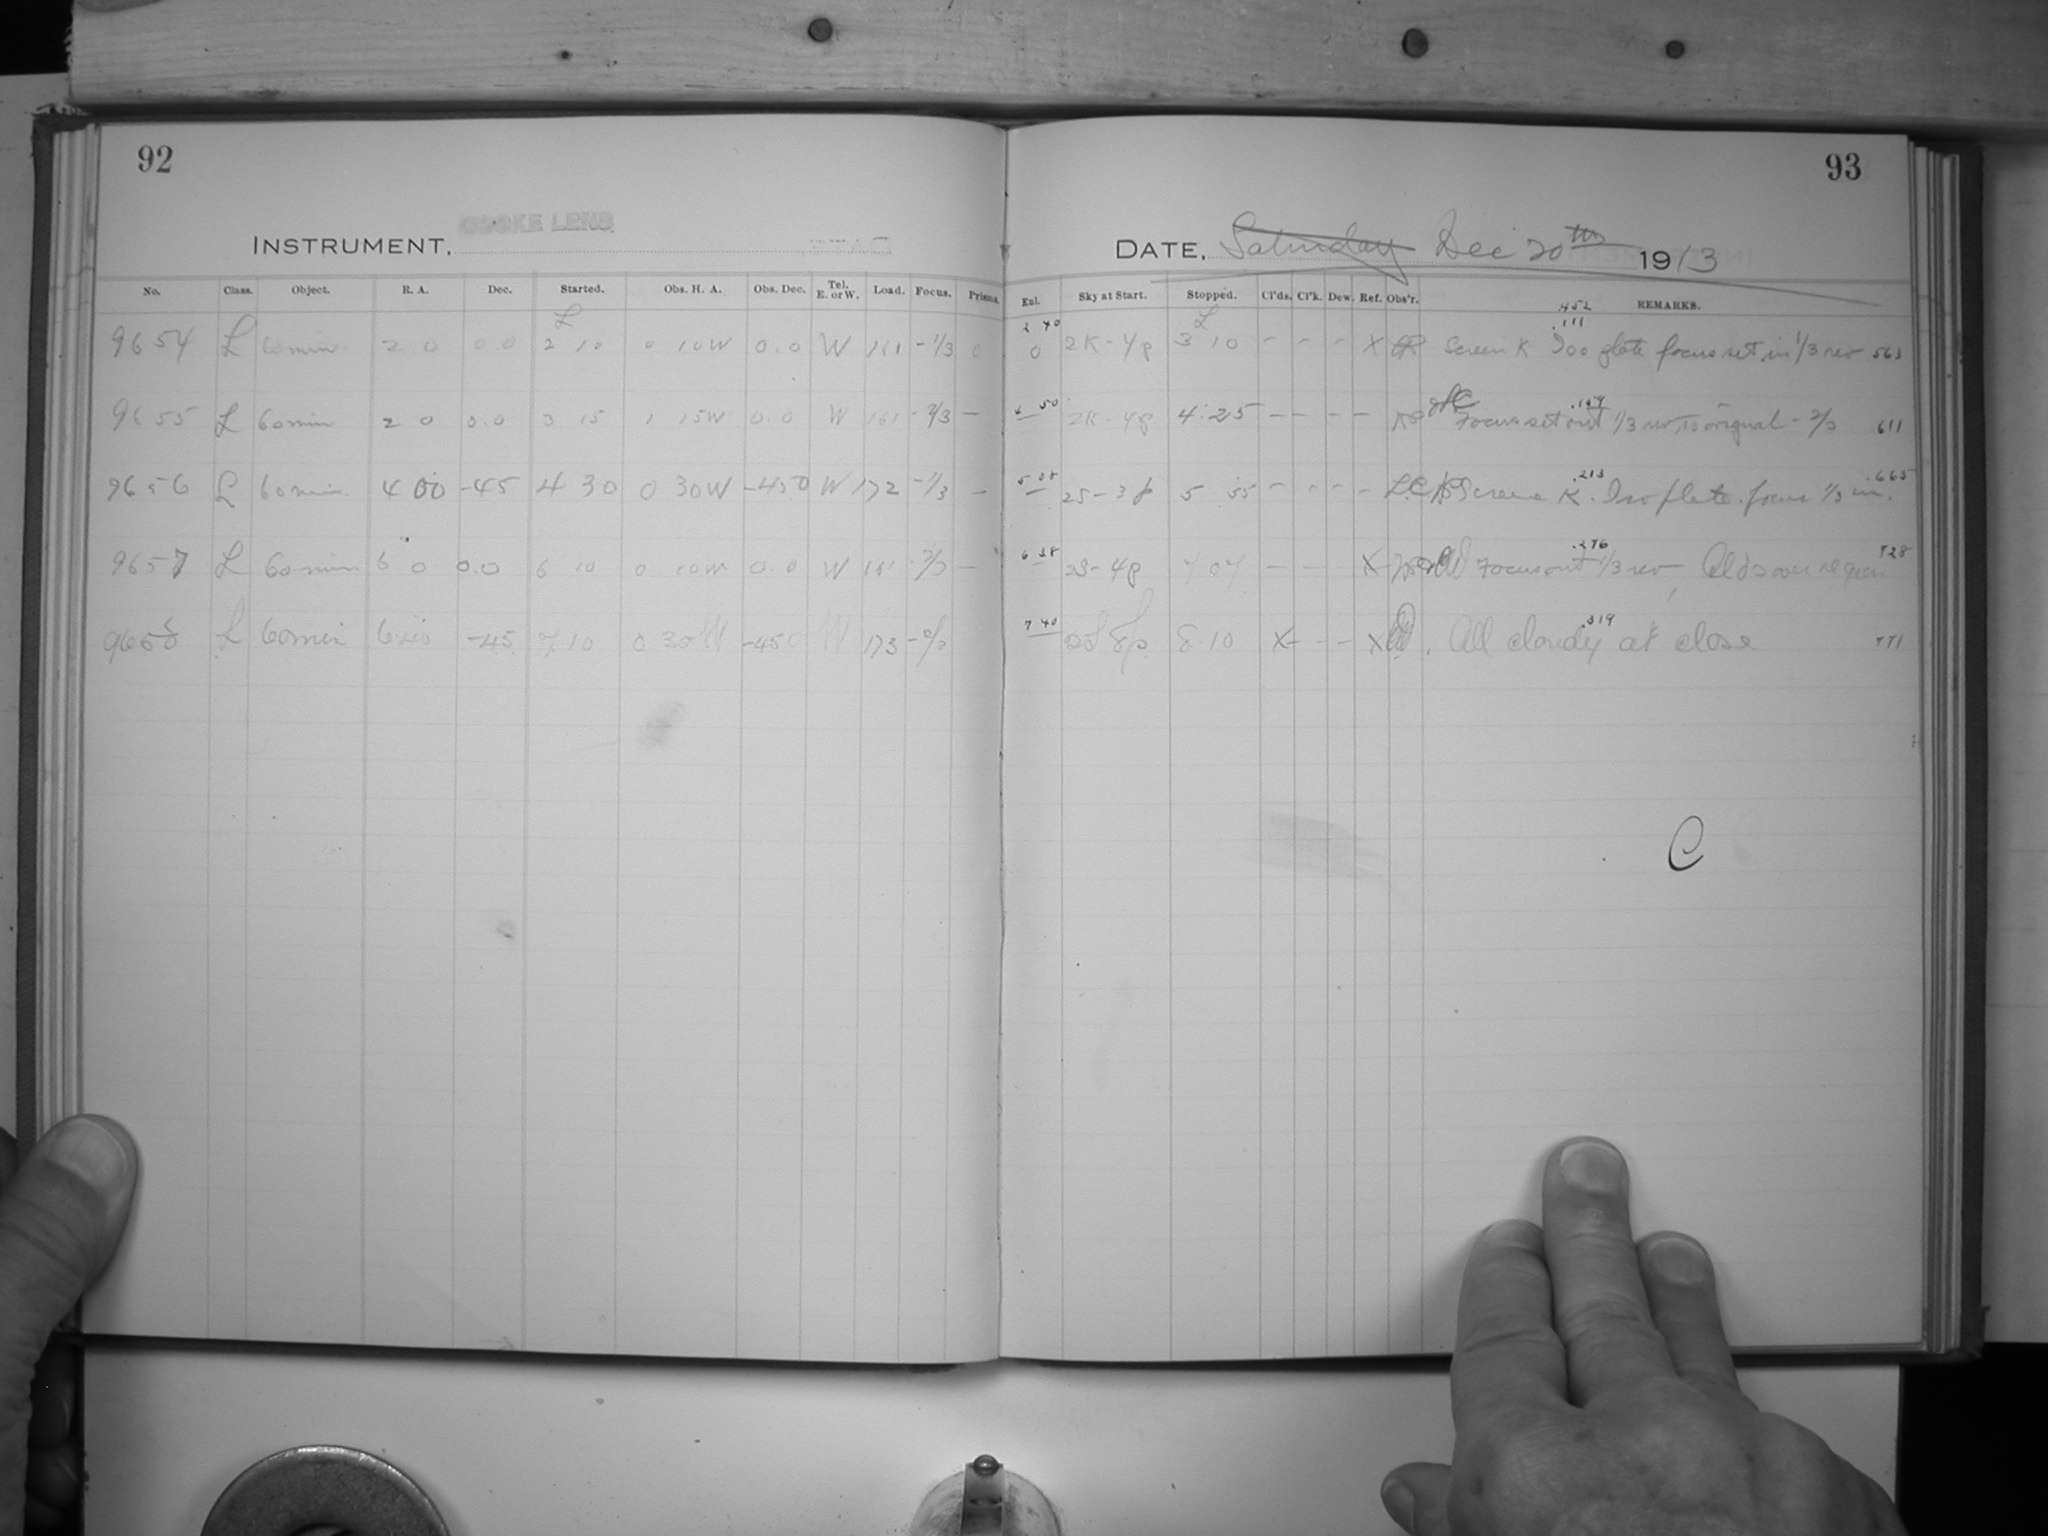 92
COOKE LENS
INSTRUMENT,
No. Class. Object. R. A. Dec. Started. Obs. H. A. Obs. Dec. Tel. E. or W. Load. Focus. Prisms.
L
9654 L 60 min 2 0 0.0 2 10 0 10W 0.0 W 161 -1/3 0
9655 L 60 min 2 0 0.0 3 15 1 15W 0.0 W 161 -2/3 —
9656 L 60 min. 4 00 -45 4 30 0 30W -450 W 172 -1/3 —
9657 L 60 min 6 0 0.0 6 10 0 10W 0.0 W 161 -2/3 —
9658 L 60 min -45 7 10 0 W -450 W 173 -2/3
93
DATE, Saturday Dec 20th 1913
Exl. Sky at Start. Stopped. Cl'ds. Cl'k. Dew. Ref. Obs'r. REMARKS.
.452
2 40 L .111
0 2K-4p 3 10 - - - X Screen K Iso plate focus set in 1/3 rev 563
50 2K-4p 4.25 - - - - Focus set out 1/3 rev to original - 2/3 611
5 08 2S-3p 5 55 - - - - L.C. Screen K .213 Iso plate. focus 1/3 in. .665
6 38 2S-4p 7.07 - - - X Focus out .276 1/3 rev Clds over region 728
7 40 8.10 X - - X All cloudy .319 at close 771
C